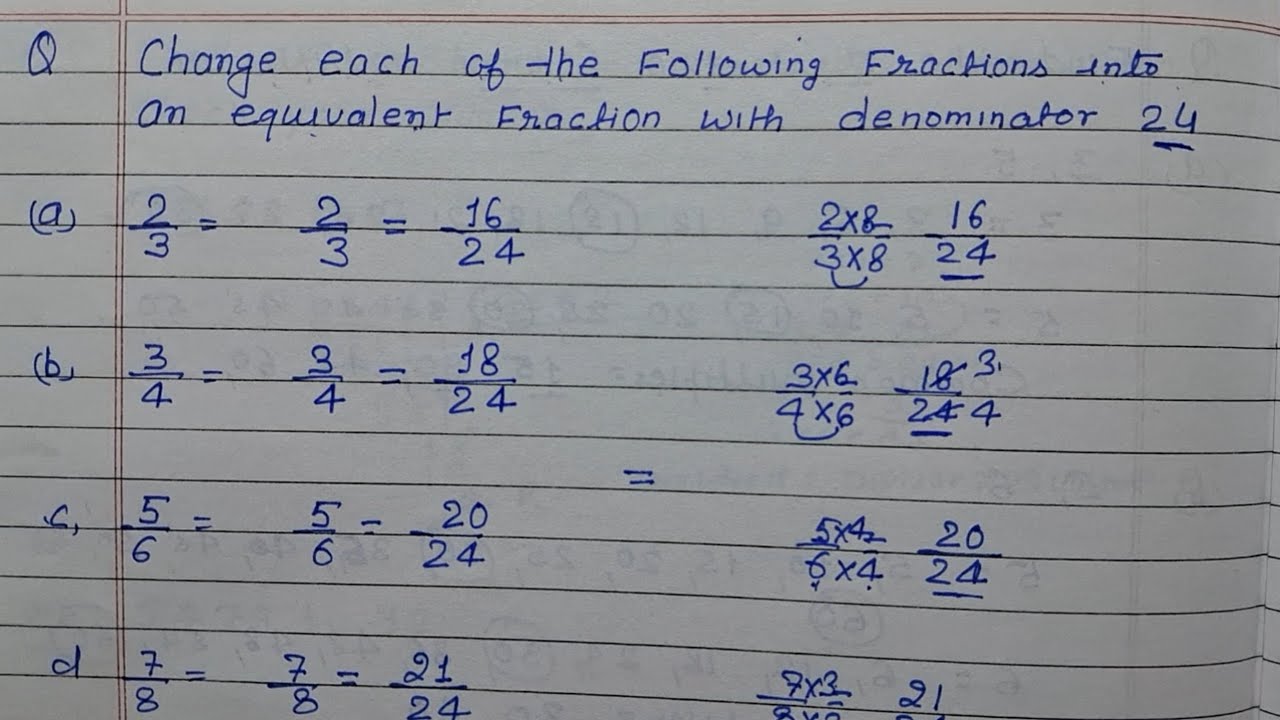 Q Change each of the Following Fractions into
an equivalent Fraction with denominator 24
(a) 2/3 = 2/3 = 16/24 2×8/3×8 16/24
(b) 3/4 = 3/4 = 18/24 3×6/4×6 18/24 3/4
=
c, 5/6 = 5/6 = 20/24 5×4/6×4 20/24
d 7/8 = 7/8 = 21/24 7×3 21